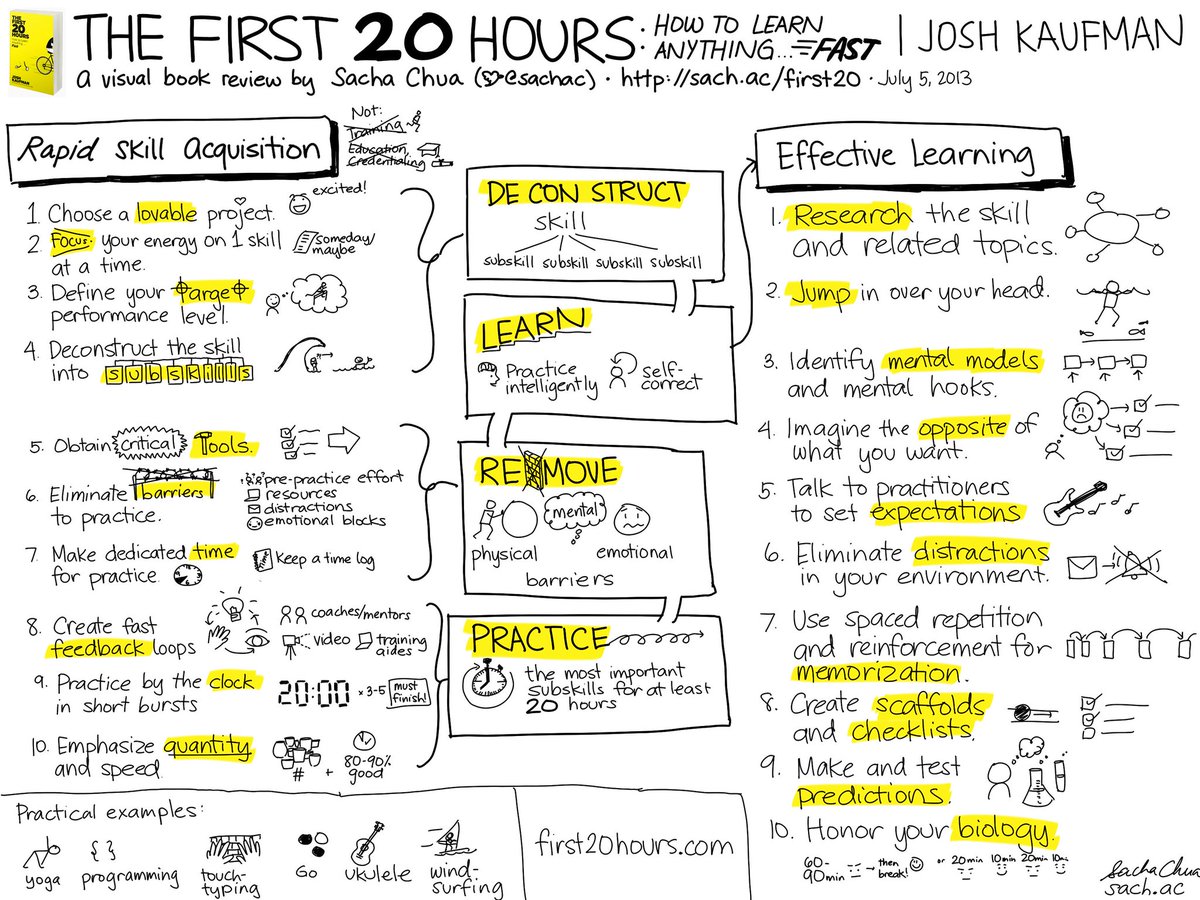 THE FIRST 20 HOURS
JOSH KAUFMAN
THE FIRST 20 HOURS: HOW TO LEARN ANYTHING... FAST | JOSH KAUFMAN
a visual book review by Sacha Chua (@sachac) · http://sach.ac/first20 · July 5, 2013
Rapid Skill Acquisition
Not:
Training
Education
Credentialing
1. Choose a lovable project.
excited!
2. Focus your energy on 1 skill
at a time.
someday/
maybe
3. Define your target
performance level.
4. Deconstruct the skill
into subskills
5. Obtain critical Tools.
6. Eliminate barriers
to practice.
pre-practice effort
resources
distractions
emotional blocks
7. Make dedicated time
for practice.
Keep a time log
8. Create fast
feedback loops
coaches/mentors
video
training
aides
9. Practice by the clock
in short bursts
20:00 x 3-5 must
finish!
10. Emphasize quantity
and speed.
# + 80-90%
good
DECONSTRUCT
skill
subskill subskill subskill subskill
LEARN
Practice
intelligently
self-
correct
REMOVE
physical
mental
emotional
barriers
PRACTICE
the most important
subskills for at least
20 hours
Effective Learning
1. Research the skill
and related topics.
2. Jump in over your head.
3. Identify mental models
and mental hooks.
4. Imagine the opposite of
what you want.
5. Talk to practitioners
to set expectations
6. Eliminate distractions
in your environment.
7. Use spaced repetition
and reinforcement for
memorization.
8. Create scaffolds
and checklists.
9. Make and test
predictions.
10. Honor your biology.
60-
90min → then
break! or 20min 10min 20min 10min
Practical examples:
yoga
programming
{ }
touch-
typing
Go
ukulele
wind-
surfing
first20hours.com
Sacha Chua
sach.ac